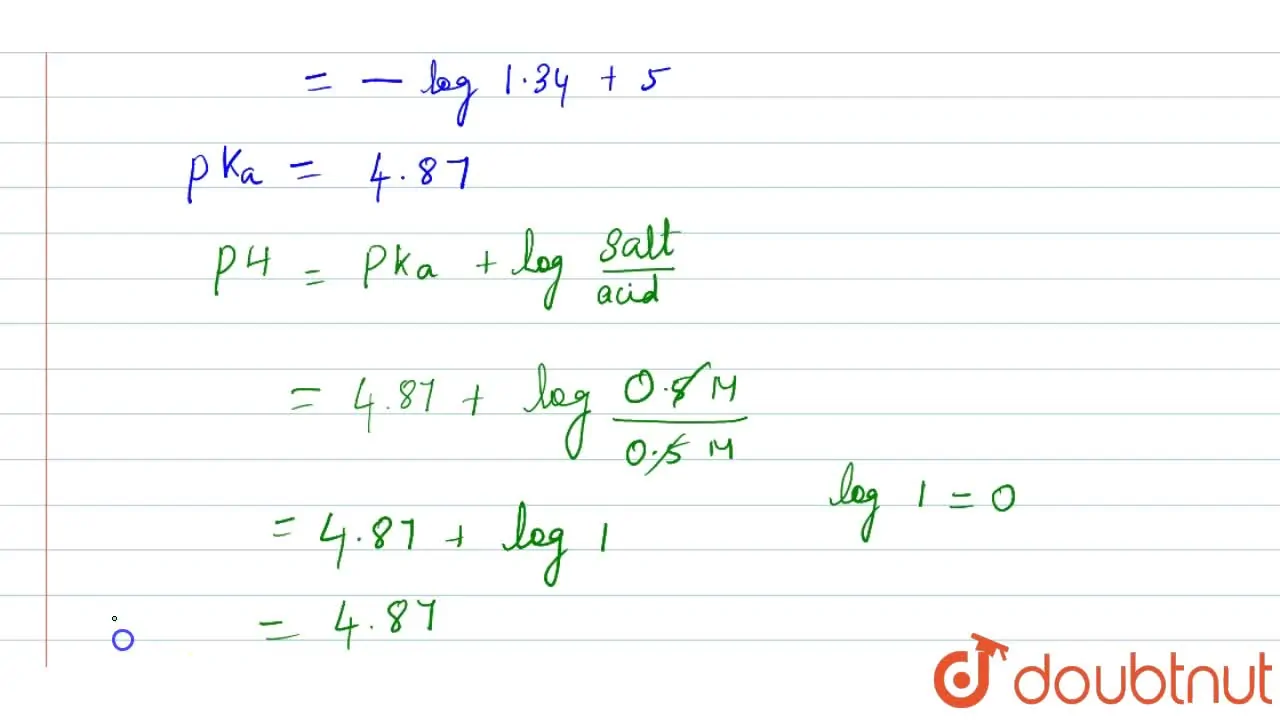 = - log 1.34 + 5
pKa = 4.87
pH = pKa + log salt/acid
= 4.87 + log 0.5 M/0.5 M
= 4.87 + log 1
log 1 = 0
= 4.87
doubtnut